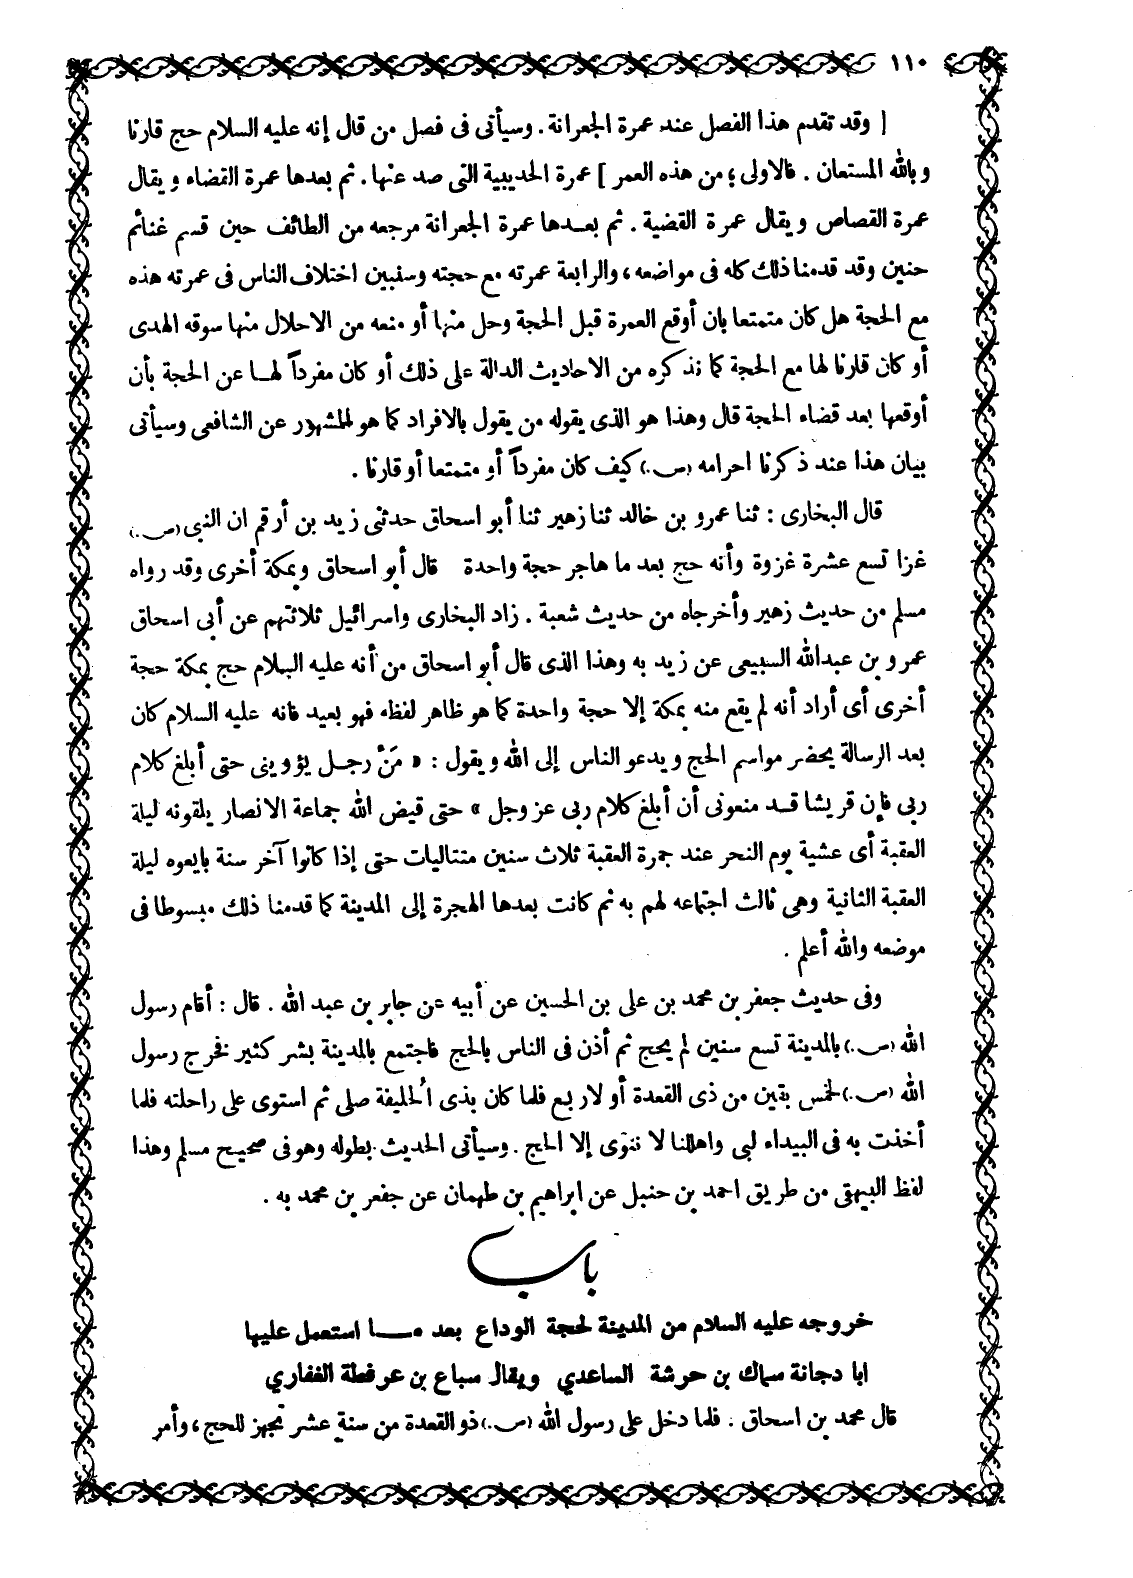 ١١٠
[ وقد تقدم هذا الفصل عند عمرة الجعرانة . وسيأتى فى فصل من قال إنه عليه السلام حج قارنا
وبالله المستعان . فالاولى ؛ من هذه العمر ] عمرة الحديبية التى صد عنها . ثم بعدها عمرة القضاء ويقال
عمرة القصاص ويقال عمرة القضية . ثم بعـدها عمرة الجعرانة مرجعه من الطائف حين قسم غنائم
حنين وقد قدمنا ذلك كله فى مواضعه ، والرابعة عمرته مع حجته وسنبين اختلاف الناس فى عمرته هذه
مع الحجة هل كان متمتعا بان أوقع العمرة قبل الحجة وحل منها أو منعه من الاحلال منها سوقه الهدى
أو كان قارنا لها مع الحجة كما نذكره من الاحاديث الدالة على ذلك أو كان مفرداً لهـا عن الحجة بأن
أوقعها بعد قضاء الحجة قال وهذا هو الذى يقوله من يقول بالافراد كما هو المشهور عن الشافعى وسيأتى
بيان هذا عند ذكرنا احرامه (ص.) كيف كان مفرداً أو متمتعا أو قارنا .
قال البخارى : ثنا عمرو بن خالد ثنا زهير ثنا أبو اسحاق حدثنى زيد بن أرقم ان النبى (ص.)
غزا تسع عشرة غزوة وأنه حج بعد ما هاجر حجة واحدة قال أبو اسحاق وبمكة أخرى وقد رواه
مسلم من حديث زهير وأخرجاه من حديث شعبة . زاد البخارى واسرائيل ثلاثتهم عن أبى اسحاق
عمرو بن عبدالله السبيعى عن زيد به وهذا الذى قال أبو اسحاق من أنه عليه السلام حج بمكة حجة
أخرى أى أراد أنه لم يقع منه بمكة إلا حجة واحدة كما هو ظاهر لفظه فهو بعيد فانه عليه السلام كان
بعد الرسالة يحضر مواسم الحج ويدعو الناس إلى الله ويقول : « مَنْ رجـل يؤوينى حتى أبلغ كلام
ربى فإن قريشا قـد منعونى أن أبلغ كلام ربى عز وجل » حتى قيض الله جماعة الانصار يلقونه ليلة
العقبة أى عشية يوم النحر عند جمرة العقبة ثلاث سنين متتاليات حتى إذا كانوا آخر سنة بايعوه ليلة
العقبة الثانية وهى ثالث اجتماعه لهم به ثم كانت بعدها الهجرة إلى المدينة كما قدمنا ذلك مبسوطا فى
موضعه والله أعلم .
وفى حديث جعفر بن محمد بن على بن الحسين عن أبيه عن جابر بن عبد الله . قال : أقام رسول
الله (ص.) بالمدينة تسع سنين لم يحج ثم أذن فى الناس بالحج فاجتمع بالمدينة بشر كثير فخرج رسول
الله (ص.) لخمس بقين من ذى القعدة أو لاربع فلما كان بذى الحليفة صلى ثم استوى على راحلته فلما
أخذت به فى البيداء لبى واهللنا لا ننوى إلا الحج . وسيأتى الحديث بطوله وهو فى صحيح مسلم وهذا
لفظ البيهقى من طريق احمد بن حنبل عن ابراهيم بن طهمان عن جفعر بن محمد به .
باب
خروجه عليه السلام من المدينة لحجة الوداع بعد مـا استعمل عليها
ابا دجانة سماك بن حرشة الساعدي ويقال سباع بن عرفطة الغفاري
قال محمد بن اسحاق . فلما دخل على رسول الله (ص.) ذو القعدة من سنة عشر تجهز للحج ، وأمر